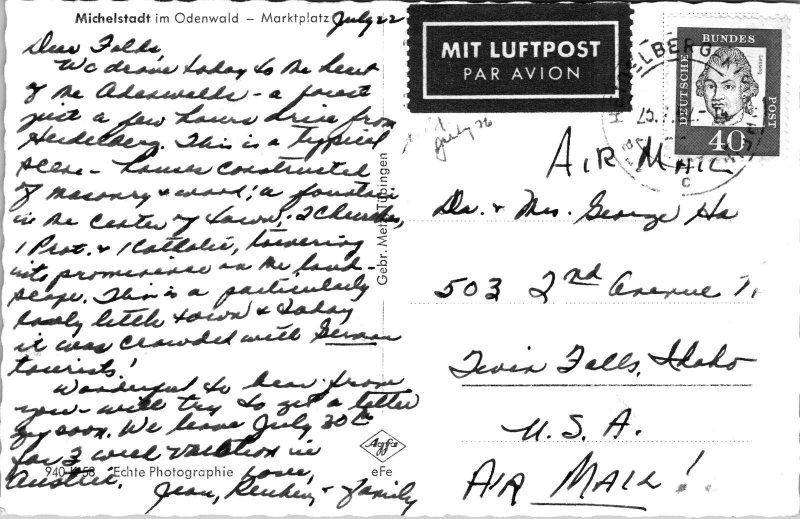 Michelstadt im Odenwald – Marktplatz
July 22
Dear Folks,
We drove today to the heart
of the Odenwalds - a forest
just a few hours drive from
Heidelberg. This is a typical
scene - houses constructed
of masonry & wood; a fountain
in the center of town; 2 Churches,
1 Prot. & 1 Catholic, towering
into prominence on the land-
scape. This is a particularly
lovely little town & today
it was crowded with German
tourists!
Wonderful to hear from
you - will try to get a letter
off soon. We leave July 30th
for 3 week vacation in
Austria.
Love,
Jean, & Family
940 K 58 Echte Photographie
Agfa
eFe
Gebr. Metz Tübingen
MIT LUFTPOST
PAR AVION
July 26
DEUTSCHE
BUNDES
POST
40
HEIDELBERG
c
AIR MAIL
Dr. & Mrs. George Ha
503 2nd Avenue N.
Twin Falls, Idaho
U.S.A.
AIR MAIL!